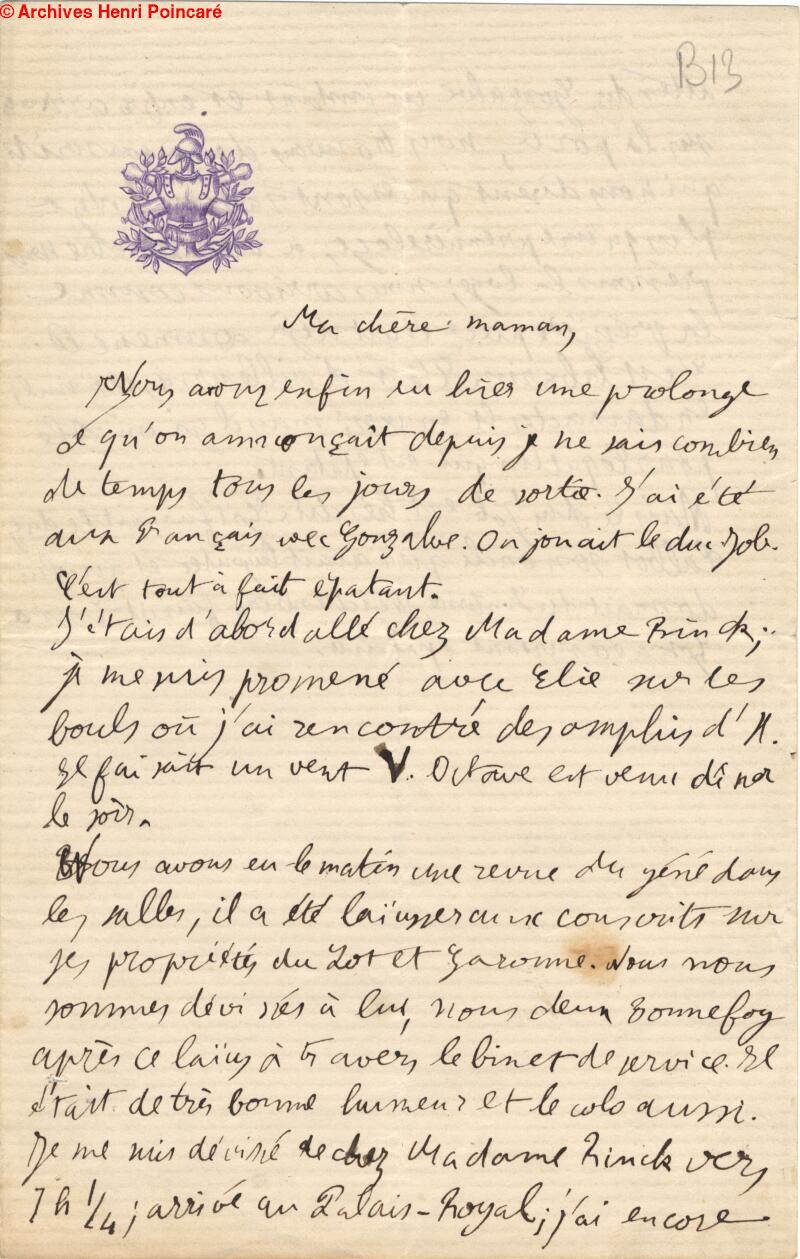 © Archives Henri Poincaré
B13
Ma chère maman,
Nous avons enfin eu hier une prolonge
ce qu'on annonçait depuis je ne sais combien
de temps tous les jours de sortie. J'ai été
aux Français avec Gonzalve. On jouait le duc Job.
C'est tout à fait épatant.
J'étais d'abord allé chez Madame Rinck;
je me suis promené avec Elie sur les
bouls où j'ai rencontré des amphis d'H.
Il faisait un vent V. Octave est venu dîner
le soir.
Nous avons eu le matin une revue du géné dans
les salles, il a été laïusser aux conscrits sur
ses propriétés du Lot et Garonne. Nous nous
sommes dévissés à lui, nous deux Bonnefoy
après ce laïus à travers le binet de service. Il
était de très bonne humeur et le colo aussi.
Je me suis dévissé de chez Madame Rinck vers
7h 1/4; arrivé au Palais-Royal; j'ai encore